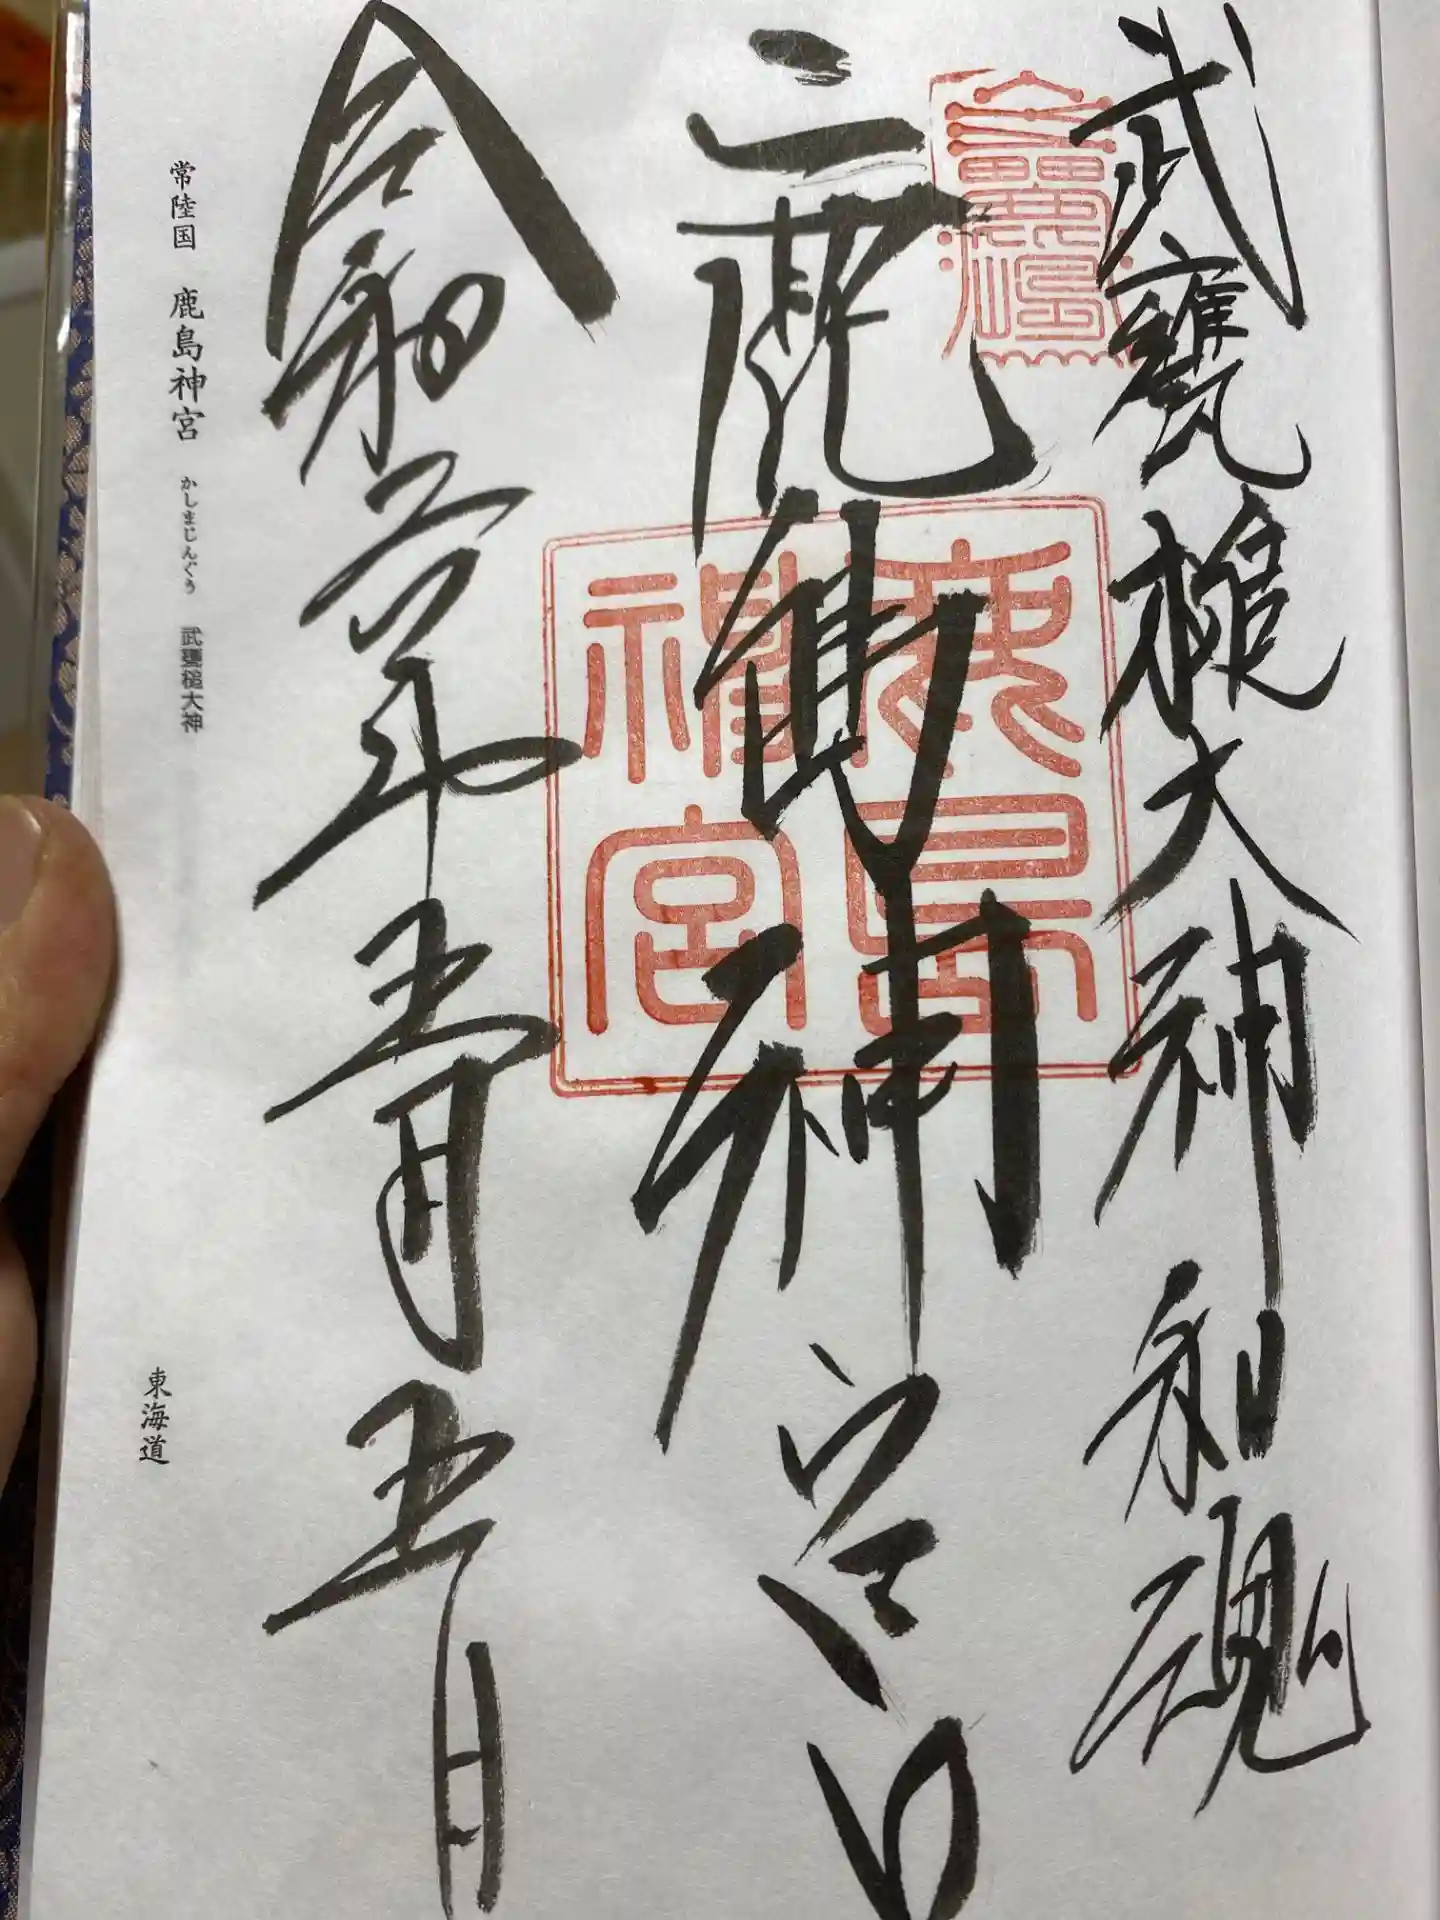 武甕槌大神 和魂
鹿島神宮
鹿島神宮
令和六年五月五日
常陸国 鹿島神宮 かしまじんぐう 武甕槌大神
東海道